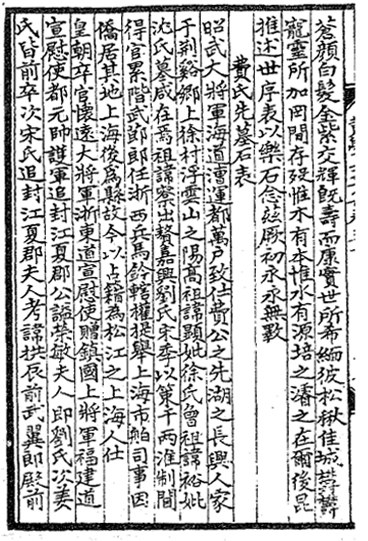 蒼顔白髮金紫交輝旣壽而康實世所希緬彼松楸佳城鬱鬱
寵靈所加罔間存歿惟木有本惟水有源培之濬之在爾後昆
推述世序表以樂石念茲厥初永永無斁
費氏先墓石表
昭武大將軍海道漕運都萬戶致仕費公之先湖之長興人家
于荆谿鄉上徐村浮雲山之陽高祖諱顯妣徐氏曾祖諱裕妣
沈氏墓咸在焉祖諱察出贅嘉興劉氏宋季以策干兩淮制閫
得官累階武節郎任浙西兵馬鈐轄權提舉上海市舶司事因
僑居其地上海後爲縣故今以占籍爲松江之上海人仕
皇朝卒官懷遠大將軍浙東道宣慰使贈鎮國上將軍福建道
宣慰使都元帥護軍追封江夏郡公謚榮敏夫人即劉氏次姜
氏皆前卒次宋氏追封江夏郡夫人考諱拱辰前武翼郎殿前